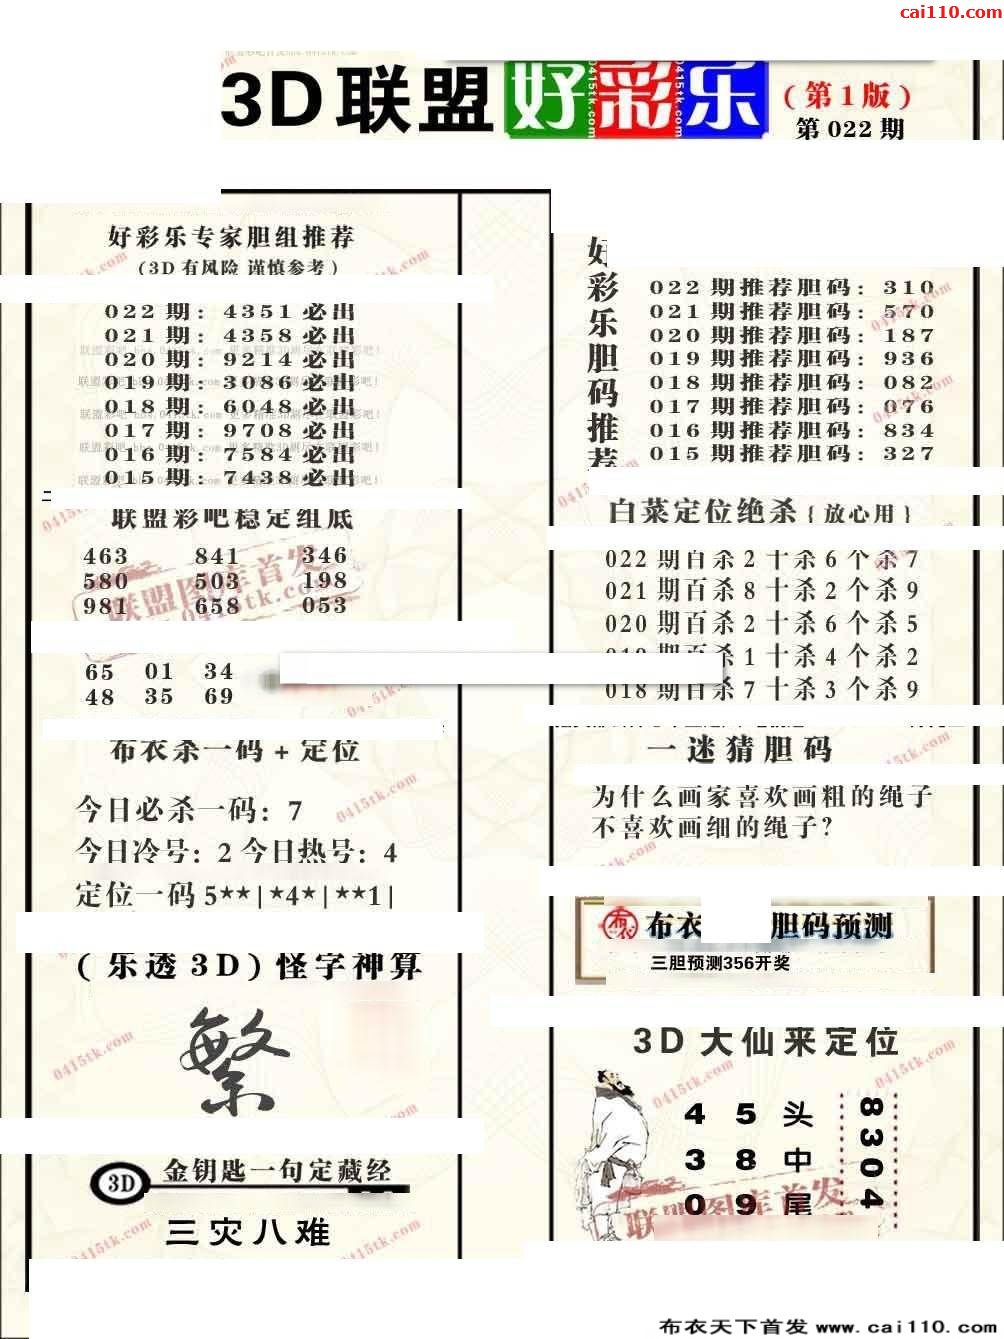 cai110.com
3D联盟好彩乐
(第1版)
第022期
好彩乐专家胆组推荐
(3D有风险 谨慎参考)
022期: 4351必出
021期: 4358必出
020期: 9214必出
019期: 3086必出
018期: 6048必出
017期: 9708必出
016期: 7584必出
015期: 7438必出
联盟彩吧稳定组底
463 841 346
580 503 198
981 658 053
65 01 34
48 35 69
布衣杀一码+定位
今日必杀一码: 7
今日冷号: 2 今日热号: 4
定位一码 5**|*4*|**1|
(乐透3D)怪字神算
繁
3D 金钥匙一句定藏经
三灾八难
好彩乐胆码推荐
022期推荐胆码: 310
021期推荐胆码: 570
020期推荐胆码: 187
019期推荐胆码: 936
018期推荐胆码: 082
017期推荐胆码: 076
016期推荐胆码: 834
015期推荐胆码: 327
白菜定位绝杀{放心用}
022期百杀2十杀6个杀7
021期百杀8十杀2个杀9
020期百杀2十杀6个杀5
杀1十杀4个杀2
018期百杀7十杀3个杀9
一迷猜胆码
为什么画家喜欢画粗的绳子
不喜欢画细的绳子?
布衣 布衣 胆码预测
三胆预测356开奖
3D大仙来定位
4 5 头
3 8 中
0 9 尾
8304
联盟图库首发
0415tk.com
布衣天下首发 www.cai110.com